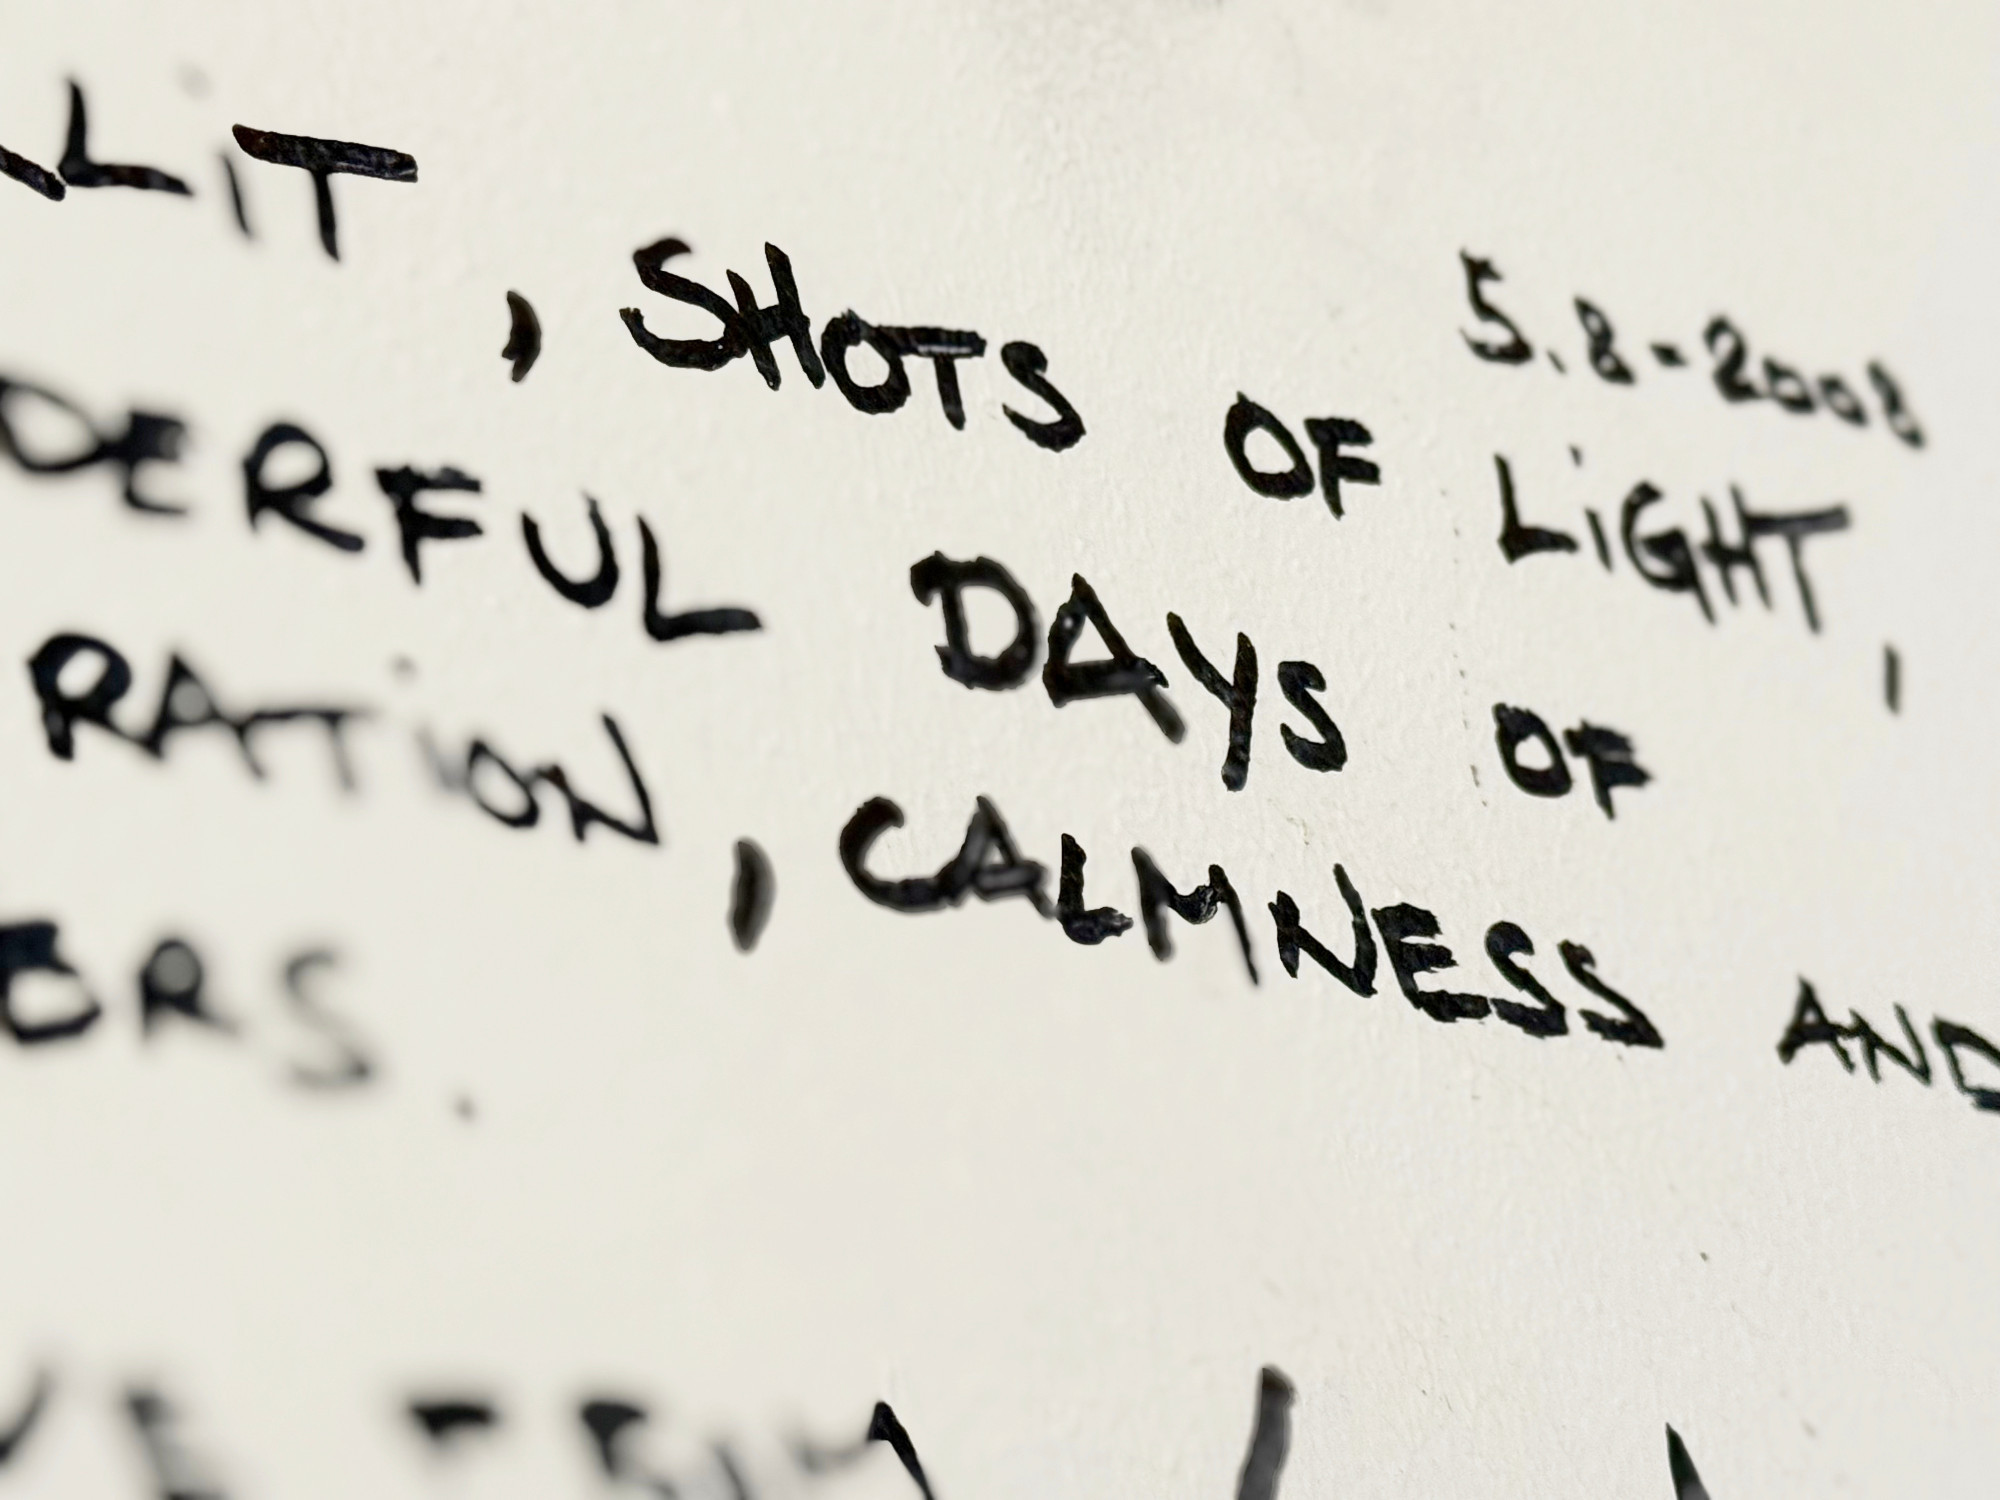 5.8-2008
LIT, SHOTS OF LIGHT,
DERFUL DAYS OF
RATION, CALMNESS AND
ERS.